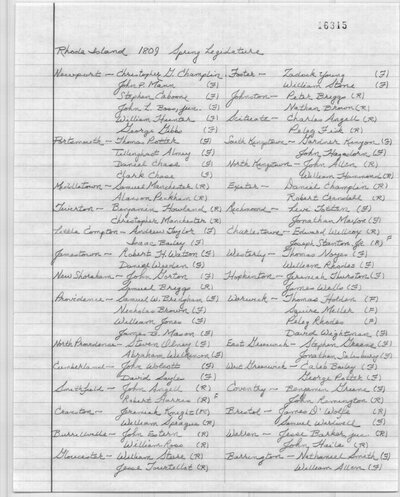 16315
Rhode Island 1809 Spring Legislature
Newport — Christopher G. Champlin
John P. Mann (F)
Stephen Cahoone (F)
John L. Boss, jun. (F)
William Hunter (F)
George Gibbs (F)
Portsmouth — Thomas Potter (F)
Tillinghast Almey (F)
Daniel Chase (F)
Clark Chase (F)
Middletown — Samuel Manchester (R)
Alanson Peckham (R)
Tiverton — Benjamin Howland (R)
Christopher Manchester (R)
Little Compton — Andrew Taylor (F)
Isaac Bailey (F)
Jamestown — Robert H. Watson (F)
Daniel Weeden (F)
New Shoreham — John Gorton (F)
Samuel Briggs (R)
Providence — Samuel W. Bridgham (F)
Nicholas Brown (F)
William Jones (F)
James B. Mason (F)
North Providence — Steven Olney (F)
Abraham Wilkinson (F)
Cumberland — John Wolcott (F)
David Sayles (F)
Smithfield — John Angell (R)
Robert Harris (R)
Cranston — Jeremiah Knight (R)
William Sprague (R)
Burrillville — John Estern (R)
William Ross (R)
Gloucester — William Steere (R)
Jesse Tourtellot (R)
Foster — Zadock Young (F)
William Stone (F)
Johnston — Peter Briggs (R)
Nathan Brown (R)
Scituate — Charles Angell (R)
Peleg Fisk (R)
South Kingstown — Gardner Kenyon (F)
John (F)
North Kingstown — John Allen (R)
William Hammond (R)
Exeter — Daniel Champlin (R)
Robert Crandall (R)
Richmond — Levi Totten (F)
Jonathan Maxson (F)
Charlestown — Edward Wilcox (R)
Joseph Stanton Jr. (R)
Westerly — Thomas Noyes (F)
William Rhodes (F)
Hopkinton — Jeremiah Thurston (F)
James Wells (F)
Warwick — Thomas Holden (F)
Squire Millerd (F)
Peleg Rhodes (F)
David Weightman (F)
East Greenwich — Stephen Greene (F)
Jonathan Salisbury (F)
West Greenwich — Caleb Bailey (F)
George Potter (F)
Coventry — Benjamin Greene (F)
John Remington (R)
Bristol — James D'Wolfe (R)
Samuel Wardwell (R)
Warren — Jesse Barker, jun. (R)
John Haile (R)
Barrington — Nathaniel Smith (F)
William Allen (F)